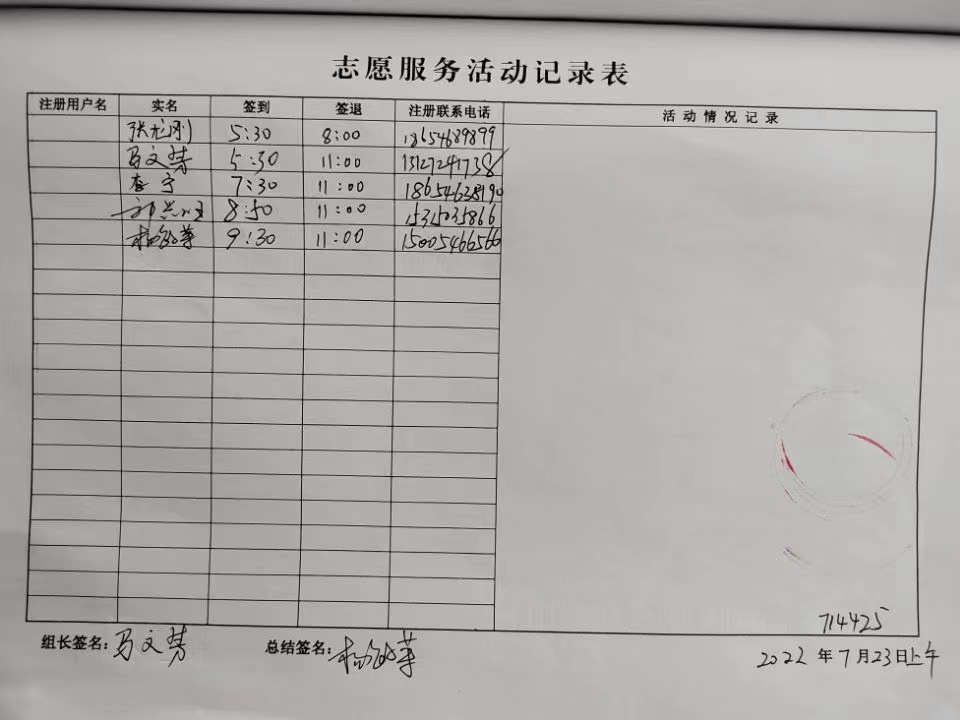 志愿服务活动记录表
注册用户名 实名 签到 签退 注册联系电话 活动情况记录
张龙刚 5:30 8:00 18654689899
马文芳 5:30 11:00 13127241738
7:30 11:00 18654638190
8:50 11:00
9:30 11:00 15005466566
组长签名: 马文芳 总结签名:
714425
2022年7月23日上午